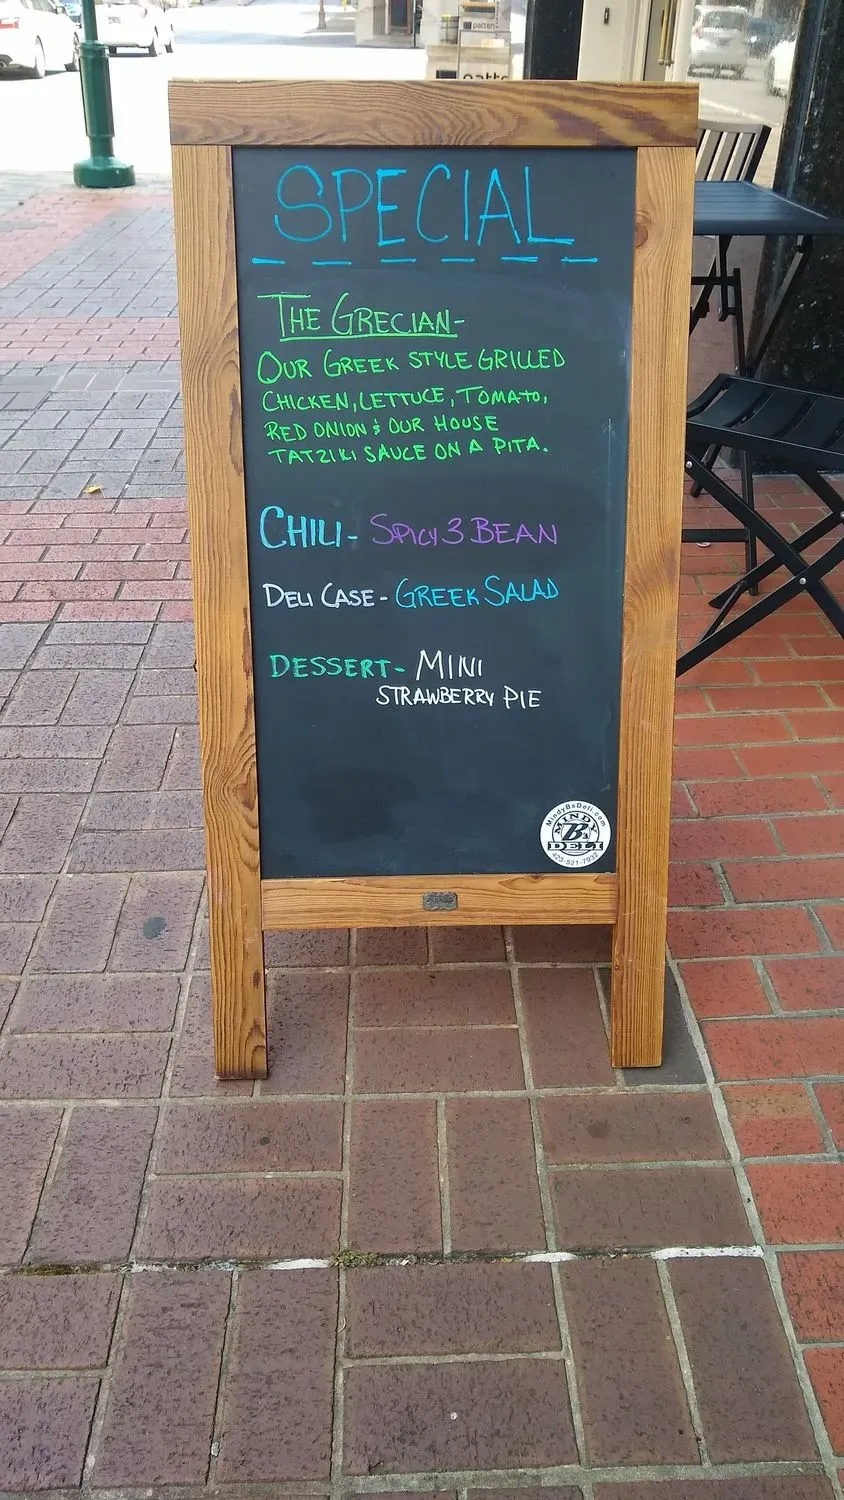 patten
SPECIAL
THE GRECIAN-
OUR GREEK STYLE GRILLED
CHICKEN, LETTUCE, TOMATO,
RED ONION & OUR HOUSE
TATZIKI SAUCE ON A PITA.
CHILI- SPICY 3 BEAN
DELI CASE - GREEK SALAD
DESSERT- MINI
STRAWBERRY PIE
MindyBsDeli.com
MINDY
B's
DELI
423-521-7932